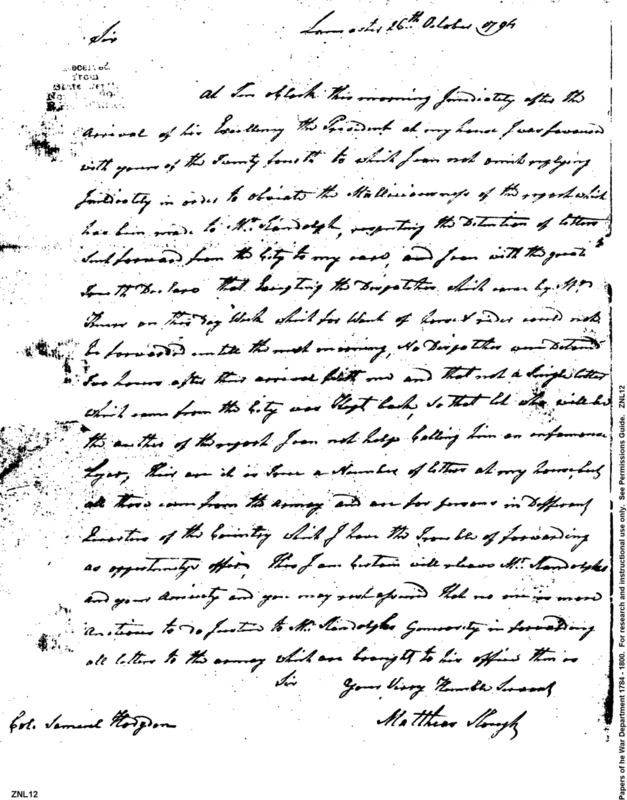 Lancaster 26th October 1794
Sir
Received
from
State Dept
At Ten oClock this morning Imediately after the
Arrival of his Excellency the President at my house I was favoured
with yours of the Twenty fourth to which I can not omit replying
Imediatly in order to obviate the Malliciousness of the report which
has been made to Mr. Randolph, respecting the Detention of letters
Sent forward from the City to my care, and I can with the greatest
Truth Declare that Excepting the Dispatches which came by Mr
on this Day Week which for Want of horse & rider could not
be forwarded untill the next morning, No Dispatches were Detained
Two hours after their arrival with me and that not a Single letter
which came from the City was Kept back, so that let who will be
the author of the report I can not help Calling him an infamous
Lyar, their are it is True a Number of letters at my house, but
all those came from the army and are for persons in Different
Quarters of the Country which I have the Trouble of forwarding
as oppertunity offers, This I am Certain will releave Mr. Randolphs
and your Anxiety and you may rest assured that no one is more
Anctious to do Justice to Mr. Randolphs Generosity in forwarding
all letters to the army which are brought to his office than is
Sir
Your Verry Humble Servant
Matthias Slough
Col. Samuel Hodgdon
ZNL12
Papers of he War Department 1784 - 1800. For research and instructional use only. See Permissions Guide. ZNL12